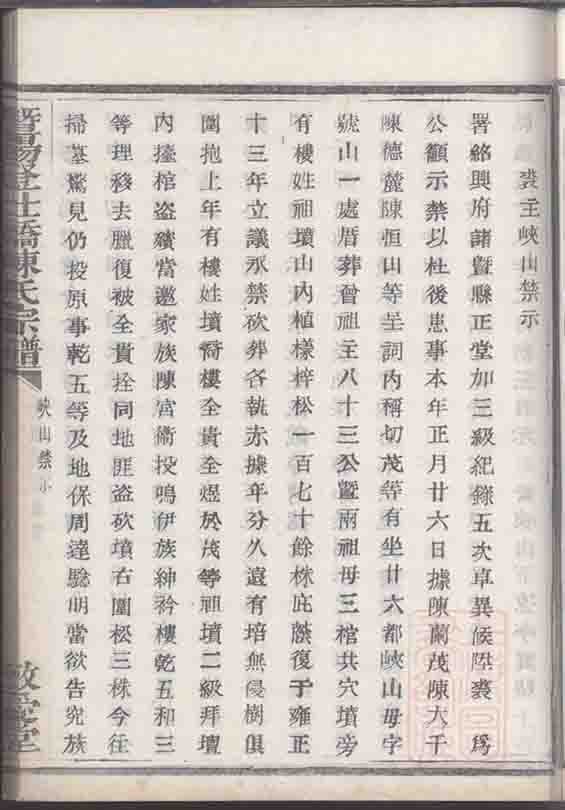 裘主峽山禁示
署紹興府諸暨縣正堂加三級紀錄五次卓異候陞裘 爲
公籲示禁以杜後患事本年正月廿六日據陳蘭茂陳大千
陳德麓陳恒山等呈詞內稱切茂等有坐廿六都峽山毋字
號山一處厝葬曾祖主八十三公暨兩祖母三棺共穴墳旁
有樓姓祖墳山內植樣梓松一百七十餘株庇蔭復于雍正
十三年立議永禁砍葬各執赤據年分久遠有培無侵樹俱
圍抱上年有樓姓墳裔樓全貴全煜於茂等祖墳二級拜壇
內擡棺盜殯當邀家族陳宮衛投鳴伊族紳衿樓乾五和三
等理移去臘復被全貴拴同地匪盜砍墳右圍松三株今往
掃墓驚見仍投原事乾五等及地保周達驗明當欲告究族
暨陽登仕橋陳氏宗譜
峽山禁示
敬愛堂